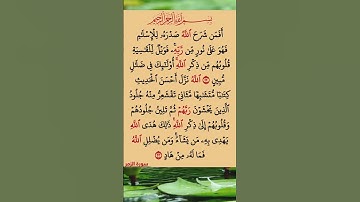 بسم الله الرحمن الرحيم
أَفَمَن شَرَحَ ٱللَّهُ صَدْرَهُۥ لِلْإِسْلَٰمِ
فَهُوَ عَلَىٰ نُورٍ مِّن رَّبِّهِۦ ۚ فَوَيْلٌ لِّلْقَٰسِيَةِ
قُلُوبُهُم مِّن ذِكْرِ ٱللَّهِ ۚ أُو۟لَٰٓئِكَ فِى ضَلَٰلٍ
مُّبِينٍ ٢٢ ٱللَّهُ نَزَّلَ أَحْسَنَ ٱلْحَدِيثِ
كِتَٰبًا مُّتَشَٰبِهًا مَّثَانِىَ تَقْشَعِرُّ مِنْهُ جُلُودُ
ٱلَّذِينَ يَخْشَوْنَ رَبَّهُمْ ثُمَّ تَلِينُ جُلُودُهُمْ
وَقُلُوبُهُمْ إِلَىٰ ذِكْرِ ٱللَّهِ ۚ ذَٰلِكَ هُدَى ٱللَّهِ
يَهْدِى بِهِۦ مَن يَشَآءُ ۚ وَمَن يُضْلِلِ ٱللَّهُ
فَمَا لَهُۥ مِنْ هَادٍ ٢٣
سورة الزمر